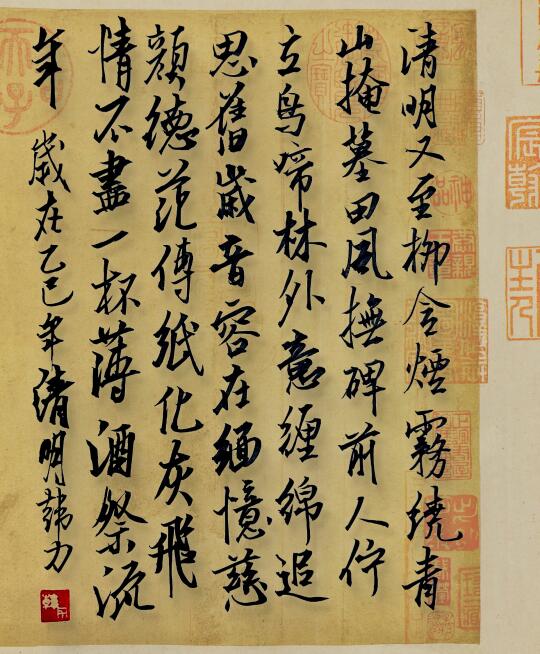 清明又至柳含煙霧繞青
山掩墓田風撫碑前人佇
立鳥啼林外意纏綿追
思舊歲音容在緬憶慈
顏德范傳紙化灰飛
情不盡一杯薄酒祭流
年 歲在乙巳年清明韓力